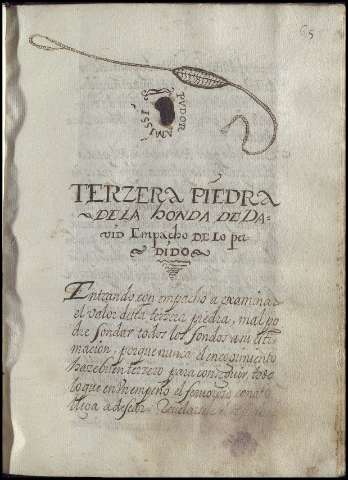 65
PVDOR
AMISSI
TERZERA PIEDRA
DE LA HONDA DE DA-
VID Empacho DE Lo pe-
DIDO
Entrando con empacho a examinar
el valor desta terzera piedra, mal po-
dre sondar todos los fondos a su esti-
macion, porque nunca el encogimiento
haze buen terzero para conseguir, todo
lo que en un empeño el fervoroso conato
llega a desear.